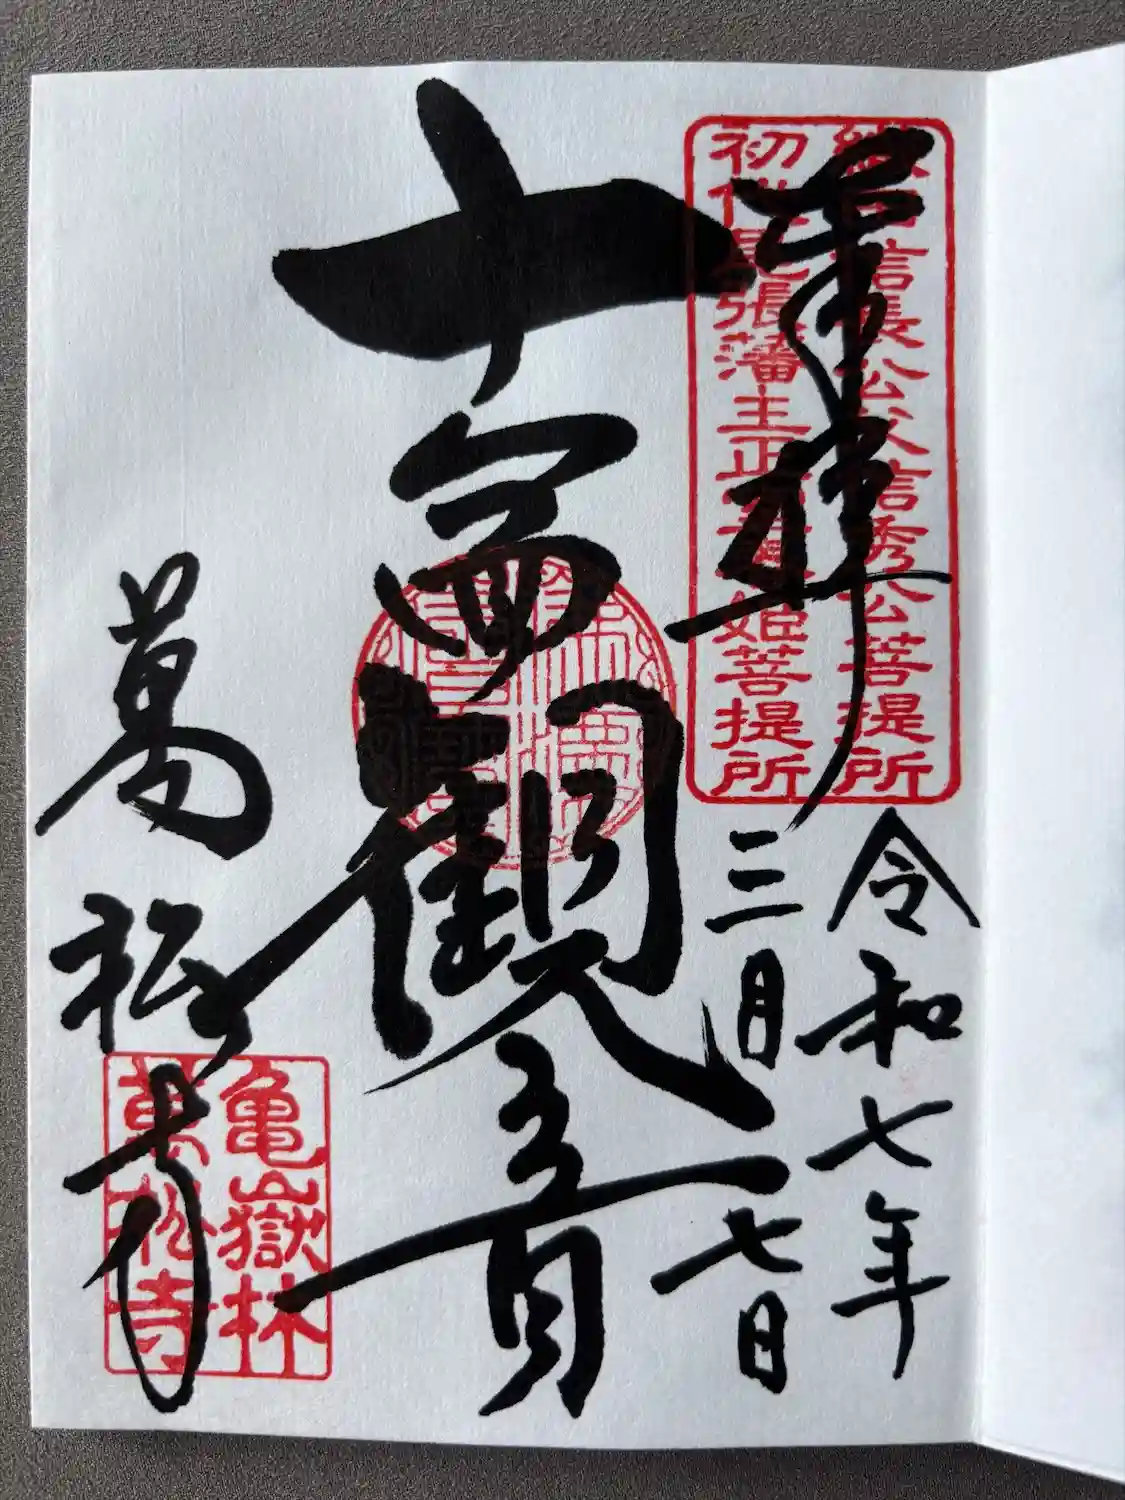 奉拝
織田信長公父信秀公菩提所
初代尾張藩主正室春姫菩提所
令和七年
三月七日
十一面観世音
亀嶽林
萬松寺
萬松寺